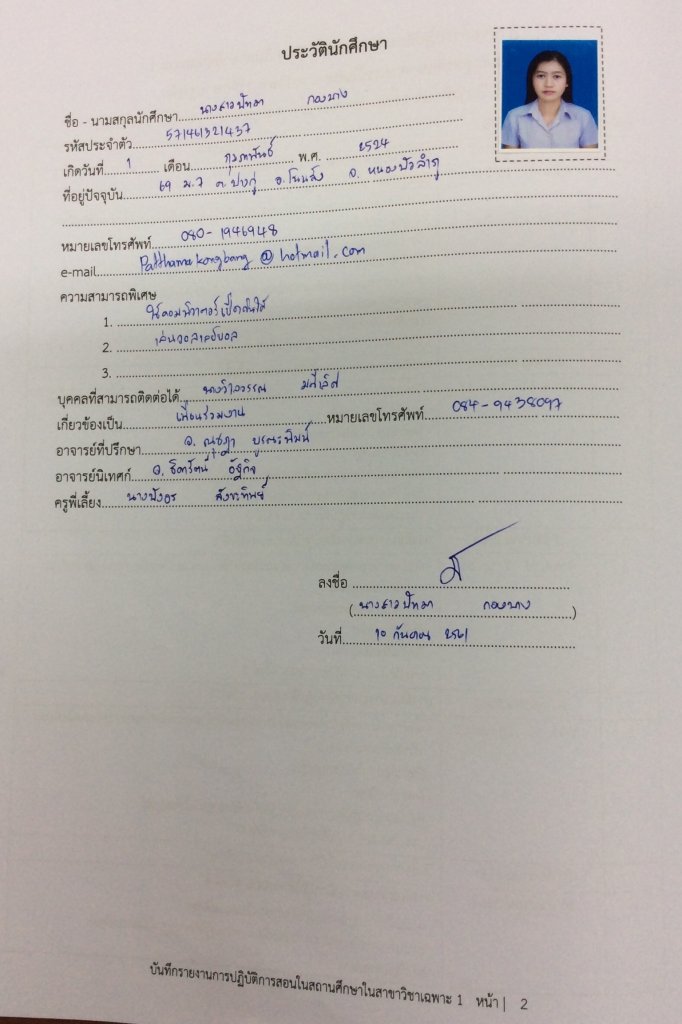 ประวัตินักศึกษา
ชื่อ - นามสกุลนักศึกษา นางสาวปัทมา กองบาง
รหัสประจำตัว 57146321437
เกิดวันที่ 1 เดือน กุมภาพันธ์ พ.ศ. 2524
ที่อยู่ปัจจุบัน 69 ม.7 ต.ปางกู่ อ.โนนสัง จ.หนองบัวลำภู
หมายเลขโทรศัพท์ 080-1946948
e-mail Patthamakongbang@hotmail.com
ความสามารถพิเศษ
1. ใช้คอมพิวเตอร์เบื้องต้นได้
2. เล่นวอลเลย์บอล
3.
บุคคลที่สามารถติดต่อได้ นางวิลาวรรณ
เกี่ยวข้องเป็น เพื่อนร่วมงาน หมายเลขโทรศัพท์ 084-9438097
อาจารย์ที่ปรึกษา อ. ณชฎา
อาจารย์นิเทศก์ อ. ธิดารัตน์
ครูพี่เลี้ยง นางบังอร สังขะทิพย์
ลงชื่อ
(นางสาวปัทมา กองบาง)
วันที่ 10 กันยายน 2561
บันทึกรายงานการปฏิบัติการสอนในสถานศึกษาในสาขาวิชาเฉพาะ 1 หน้า | 2